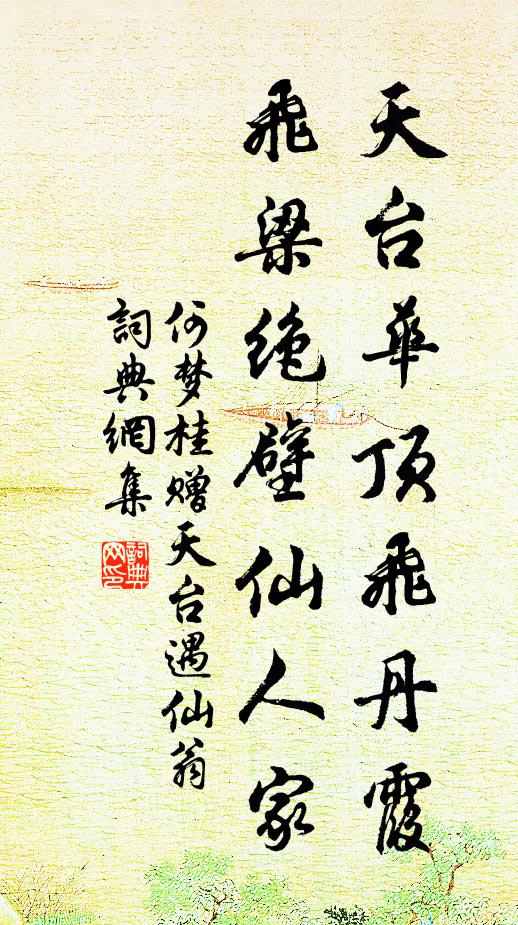 天台华顶飞丹霞
飞梁绝壁仙人家
何梦桂赠天台遇仙翁
詞典網集
詞典网印